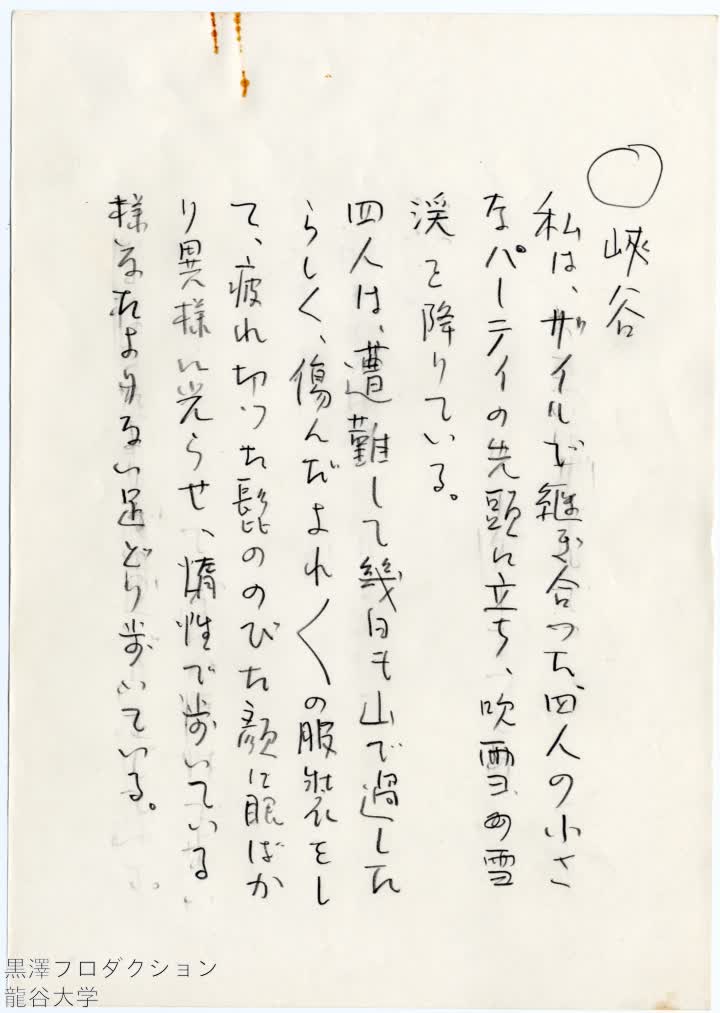 ○峡谷
私は、ザイルで継ぎ合った、四人の小さ
なパーティの先頭に立ち、吹雪の雪
渓を降りている。
四人は、遭難して幾日も山で過した
らしく、傷んだよれ〱の服装をし
て、疲れ切った髭ののびた顔に眼ばか
り異様に光らせ、惰性で歩いている
様なたよりない足どり歩いている。
黒澤プロダクション
龍谷大学